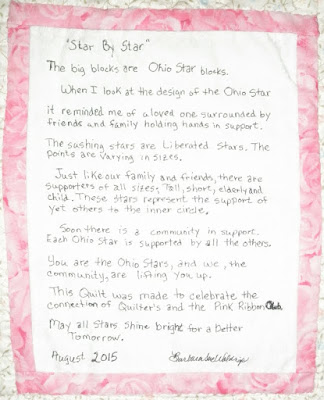 "Star By Star"
The big blocks are Ohio Star blocks.
When I look at the design of the Ohio Star
it reminded me of a loved one surrounded by
friends and family holding hands in support.
The sashing stars are Liberated Stars. The
points are varying in sizes.
Just like our family and friends, there are
supporters of all sizes; Tall, short, elderly and
child. These stars represent the support of
yet others to the inner circle.
Soon there is a community in support.
Each Ohio Star is supported by all the others.
You are the Ohio Stars, and we, the
community, are lifting you up.
This Quilt was made to celebrate the
connection of Quilter's and the Pink Ribbon Club.
May all Stars shine bright for a better
Tomorrow.
August 2015